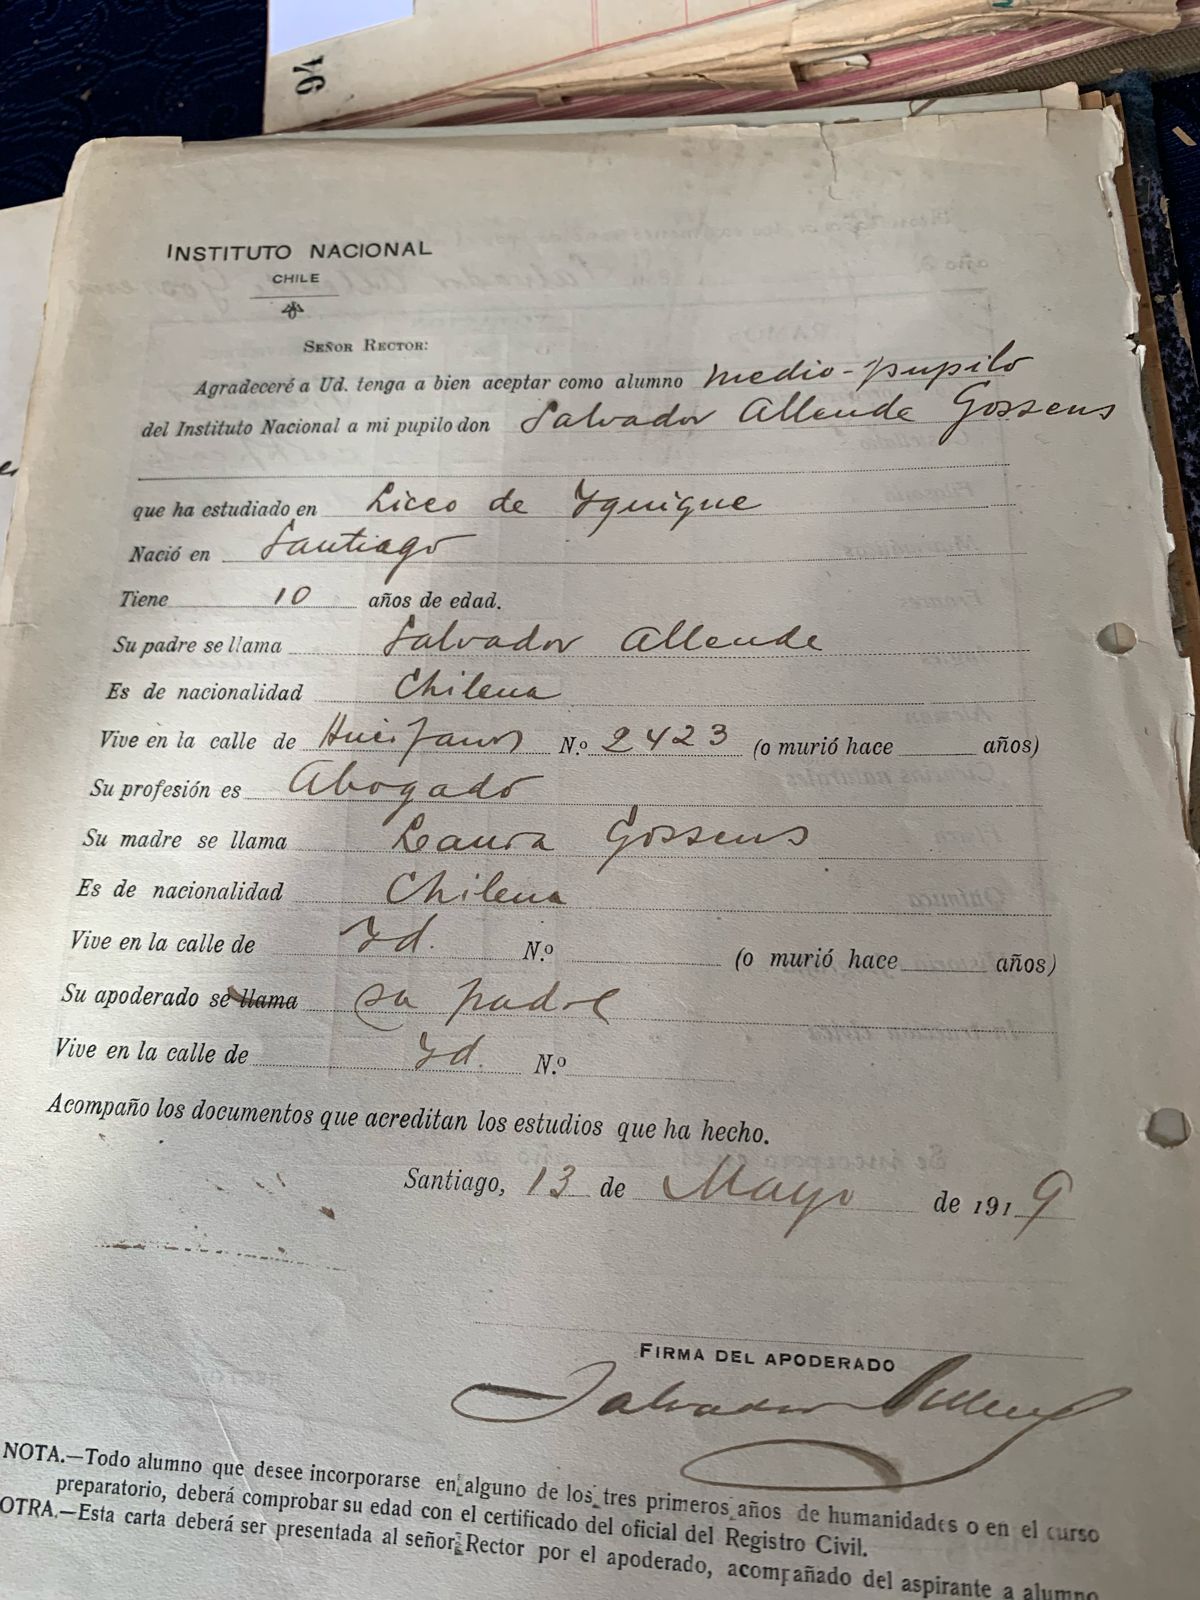 94
INSTITUTO NACIONAL
CHILE
SEÑOR RECTOR:
Agradeceré a Ud. tenga a bien aceptar como alumno medio-pupilo
del Instituto Nacional a mi pupilo don Salvador Allende Gossens
que ha estudiado en Liceo de Yquique
Nació en Santiago
Tiene 10 años de edad.
Su padre se llama Salvador Allende
Es de nacionalidad Chilena
Vive en la calle de Huérfanos N.º 2423 (o murió hace años)
Su profesión es Abogado
Su madre se llama Laura Gossens
Es de nacionalidad Chilena
Vive en la calle de Yd. N.º (o murió hace años)
Su apoderado se llama su padre
Vive en la calle de Yd. N.º
Acompaño los documentos que acreditan los estudios que ha hecho.
Santiago, 13 de Mayo de 1919
FIRMA DEL APODERADO
Salvador Allende
NOTA.—Todo alumno que desee incorporarse en alguno de los tres primeros años de humanidades o en el curso
preparatorio, deberá comprobar su edad con el certificado del oficial del Registro Civil.
OTRA.—Esta carta deberá ser presentada al señor Rector por el apoderado, acompañado del aspirante a alumno